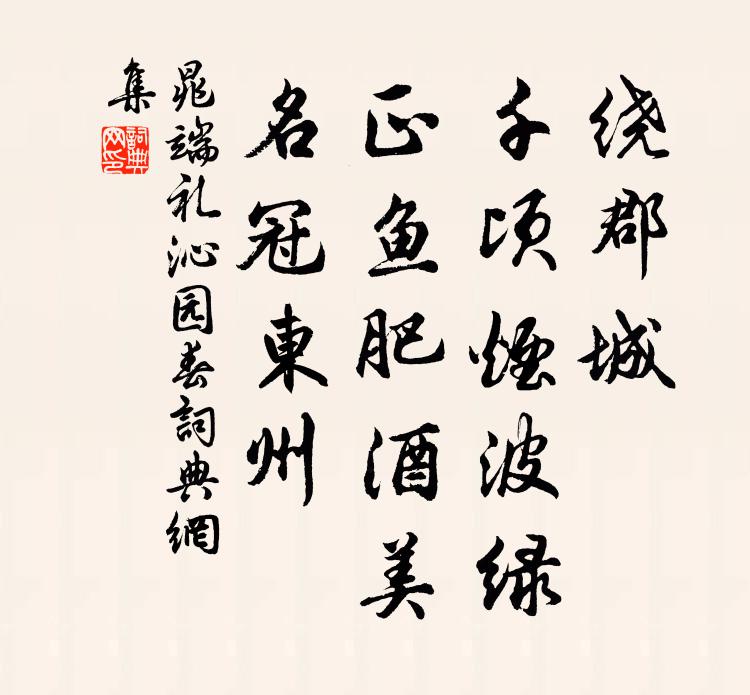 绕郡城
千顷煙波绿
正鱼肥酒美
名冠東州
晁端礼沁园春詞典網
集
詞典
网印